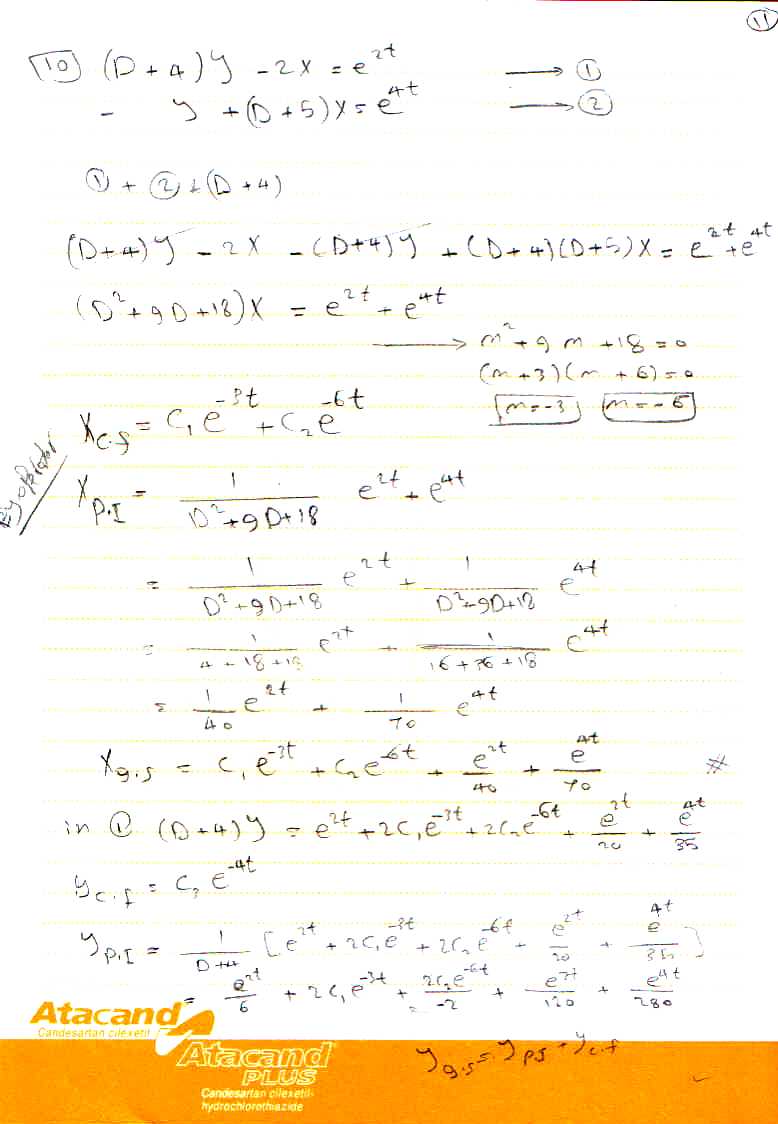 11
10 (D + 4) y - 2x = e^2t → ①
- y + (D + 5) x = e^4t → ②
① + ② * (D + 4)
(D + 4) y - 2x - (D + 4) y + (D + 4)(D + 5) x = e^2t + e^4t
(D² + 9D + 18) x = e^2t + e^4t
→ m² + 9m + 18 = 0
(m + 3)(m + 6) = 0
m = -3 m = -6
x_c.f = C₁ e^-3t + C₂ e^-6t
By operator
x_P.I = 1/(D² + 9D + 18) e^2t + e^4t
= 1/(D² + 9D + 18) e^2t + 1/(D² + 9D + 18) e^4t
= 1/(4 + 18 + 18) e^2t + 1/(16 + 36 + 18) e^4t
= 1/40 e^2t + 1/70 e^4t
x_g.s = C₁ e^-3t + C₂ e^-6t + e^2t/40 + e^4t/70 #
in ① (D + 4) y = e^2t + 2C₁ e^-3t + 2C₂ e^-6t + e^2t/20 + e^4t/35
y_c.f = C₃ e^-4t
y_P.I = 1/(D+4) [e^2t + 2C₁ e^-3t + 2C₂ e^-6t + e^2t/20 + e^4t/35]
= e^2t/6 + 2C₁ e^-3t + 2C₂ e^-6t/-2 + e^2t/120 + e^4t/280
y_g.s = y_P.S + y_c.f
Atacand
Candesartan cilexetil
Atacand
PLUS
Candesartan cilexetil-
hydrochlorothiazide